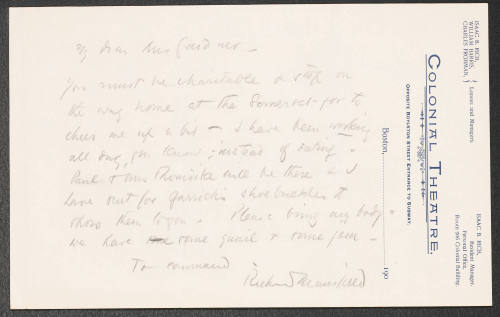 ISAAC B. RICH,
WILLIAM HARRIS,
CHARLES FROHMAN,
Lessees and Managers.
COLONIAL THEATRE.
OPPOSITE BOYLSTON STREET ENTRANCE TO SUBWAY.
ISAAC B. RICH,
Resident Manager.
Personal Office,
Colonial Building.
Boston, 190
My dear Mrs Gardner –
You must be charitable & stop on
the way home at the Somerset – for to
cheer me up a bit – I have been working
all day, you know, instead of eating.
Paul & Mrs will be there & I
have out for Garrick's shoebuckles to
show them to you. Please bring any body –
we have some quail & some
To command
Richard Mansfield